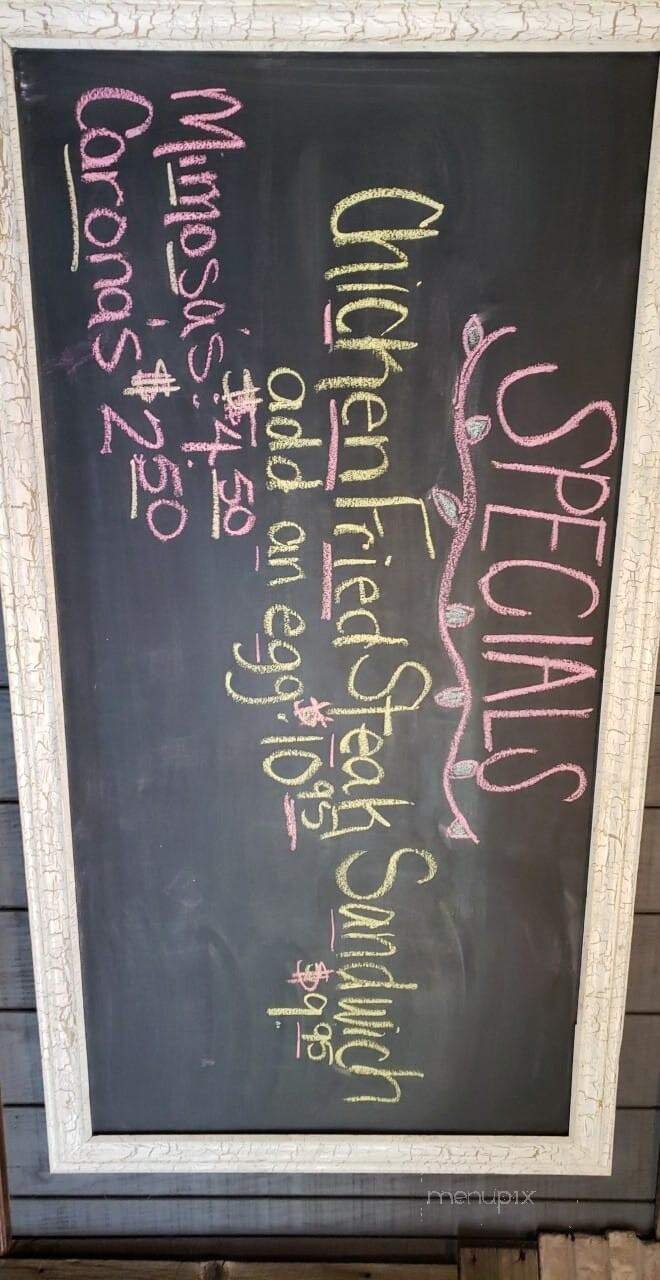 SPECIALS
Chicken Fried Steak Sandwich
$9.95
add an egg. $10.95
Mimosa's: $4.50
Carona's $2.50
menupix